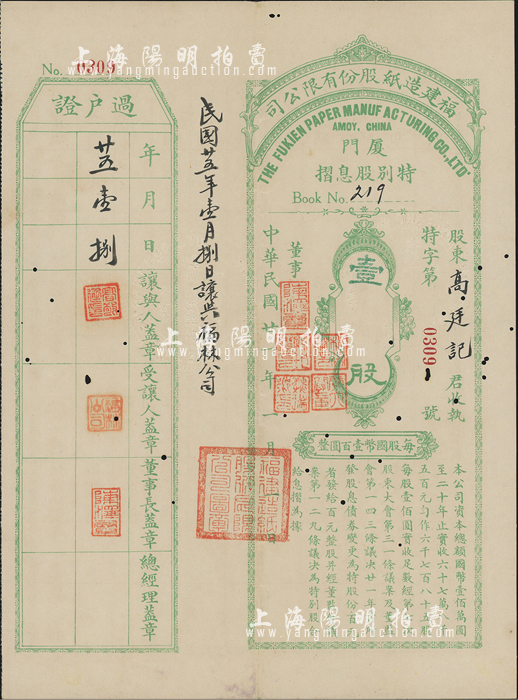 上海陽明拍賣
www.yangmingauction.com
福建造紙股份有限公司
THE FUKIEN PAPER MANUFACTURING CO., LTD
AMOY, CHINA
厦門
特別股息摺
Book No. 219
股東高廷記君收執
特字第0309號
壹股
董事
中華民國廿年一月日
每股國幣壹百圓整
本公司資本總額國幣壹佰萬圓
至二十年止實收六十七萬
五百元勻作六千七百八十五股
每股壹佰圓實收足數經第
股東大會第三一條議案及
會第一四三條議决廿一年
發股息債券變更為特股份
者發給百元整股并經董
案第一二九條議决為特別股
給息摺為據
福建造紙股份有限公司圖章
民國廿五年壹月捌日讓與福林公司
No. 0309
過户證
年 廿五
月 壹
日 捌
讓與人蓋章
受讓人蓋章
董事長蓋章
總經理蓋章
上海陽明拍賣
www.yangmingauction.com
上海陽明拍賣
www.yangmingauction.com